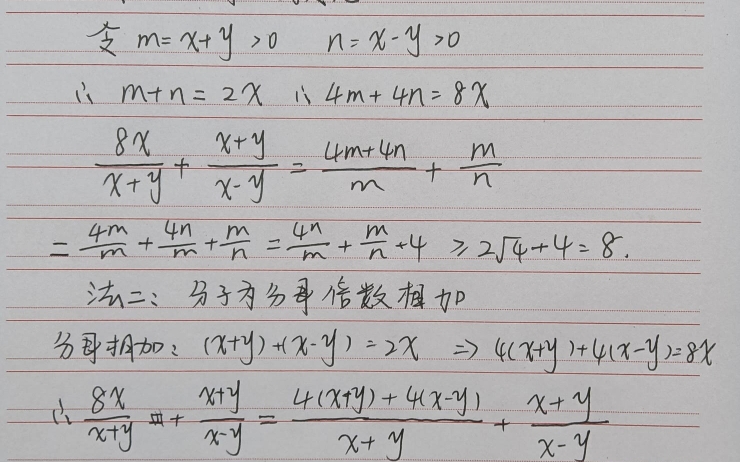 令 m=x+y>0 n=x-y>0
∴ m+n=2x ∴ 4m+4n=8x
8x/(x+y) + (x+y)/(x-y) = (4m+4n)/m + m/n
= 4m/m + 4n/m + m/n = 4n/m + m/n +4 ≥ 2√4+4=8.
法二: 分子为分母倍数相加
分母相加: (x+y)+(x-y)=2x ⇒ 4(x+y)+4(x-y)=8x
∴ 8x/(x+y) + (x+y)/(x-y) = (4(x+y)+4(x-y))/(x+y) + (x+y)/(x-y)